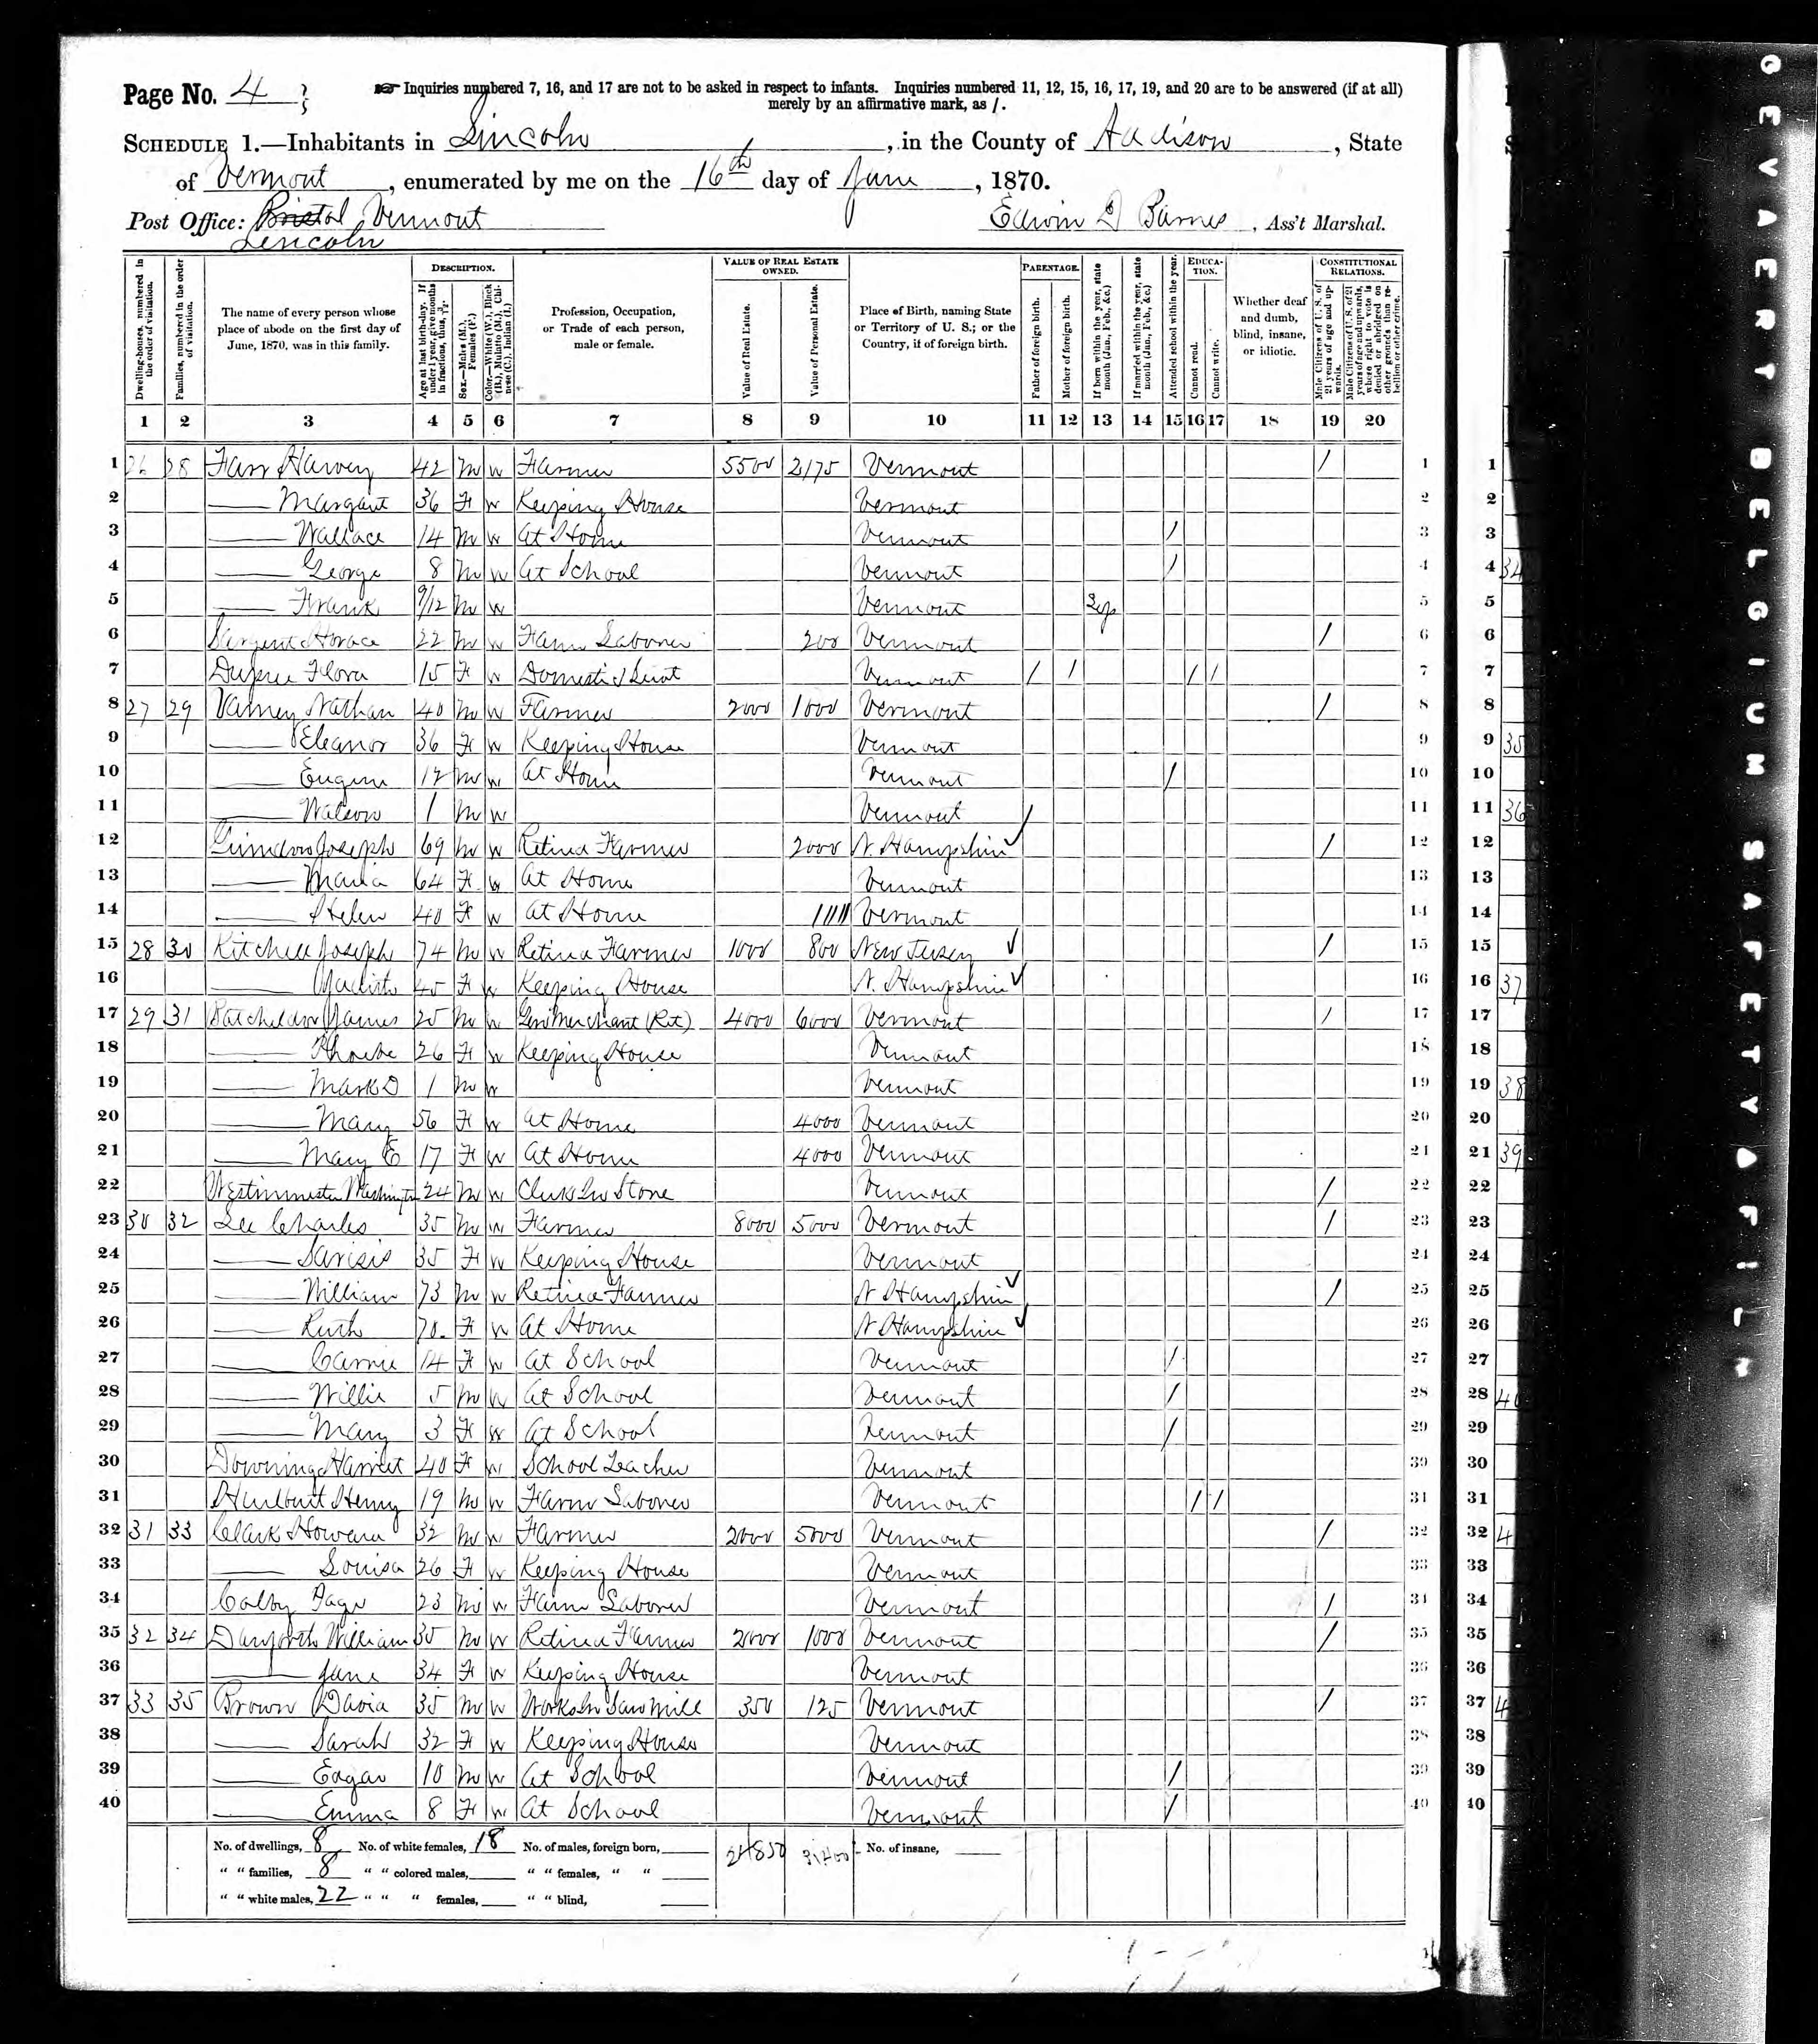 Page No. 4
☞ Inquiries numbered 7, 16, and 17 are not to be asked in respect to infants. Inquiries numbered 11, 12, 15, 16, 17, 19, and 20 are to be answered (if at all)
merely by an affirmative mark, as /.
SCHEDULE 1.—Inhabitants in Lincoln, in the County of Addison, State
of Vermont, enumerated by me on the 16th day of June, 1870.
Post Office: Bristol Vermont
Lincoln
Edwin D Barnes, Ass't Marshal.
Dwelling-houses, numbered in the order of visitation.
Families, numbered in the order of visitation.
The name of every person whose place of abode on the first day of June, 1870, was in this family.
DESCRIPTION.
Age at last birth-day. If under 1 year, give months in fractions, thus, 3/12.
Sex.—Males (M.), Females (F.)
Color.—White (W.), Black (B.), Mulatto (M.), Chinese (C.), Indian (I.)
Profession, Occupation, or Trade of each person, male or female.
VALUE OF REAL ESTATE OWNED.
Value of Real Estate.
Value of Personal Estate.
Place of Birth, naming State or Territory of U. S.; or the Country, if of foreign birth.
PARENTAGE.
Father of foreign birth.
Mother of foreign birth.
If born within the year, state month (Jan., Feb., &c.)
If married within the year, state month (Jan., Feb., &c.)
Attended school within the year.
EDUCATION.
Cannot read.
Cannot write.
Whether deaf and dumb, blind, insane, or idiotic.
CONSTITUTIONAL RELATIONS.
Male Citizens of U. S. of 21 years of age and upwards.
Male Citizens of U. S. of 21 years of age and upwards, whose right to vote is denied or abridged on other grounds than rebellion or other crime.
1 2 3 4 5 6 7 8 9 10 11 12 13 14 15 16 17 18 19 20
1 26 28 Farr Harvey 42 M W Farmer 5500 2175 Vermont / 1
2 — Margaret 36 F W Keeping House Vermont 2
3 — Wallace 14 M W At Home Vermont / 3
4 — George 8 M W At School Vermont / 4
5 — Frank 9/12 M W Vermont Sep 5
6 Sargent Horace 22 M W Farm Laborer 200 Vermont / 6
7 Flora 15 F W Domestic Vermont / / / / 7
8 27 29 Varney Nathan 40 M W Farmer 2000 1000 Vermont / 8
9 — Eleanor 36 F W Keeping House Vermont 9
10 — Eugene 12 M W At Home Vermont / 10
11 — Watson 1 M W Vermont 11
12 Joseph 69 M W Retired Farmer 2000 N. Hampshire / 12
13 — Maria 64 F W At Home Vermont 13
14 — Helen 40 F W At Home Vermont 14
15 28 30 Kitchell Joseph 74 M W Retired Farmer 1000 800 New Jersey / 15
16 — Judith 45 F W Keeping House N. Hampshire 16
17 29 31 Batchelder James 25 M W Gen Merchant (Ret) 4000 6000 Vermont / 17
18 — Phoebe 26 F W Keeping House Vermont 18
19 — Mark D 1 M W Vermont 19
20 — Mary 56 F W At Home 4000 Vermont 20
21 — Mary E 17 F W At Home 4000 Vermont 21
22 Westminster Washington 24 M W Clerk In Store Vermont / 22
23 30 32 Lee Charles 35 M W Farmer 8000 5000 Vermont / 23
24 — 35 F W Keeping House Vermont 24
25 — William 73 M W Retired Farmer N Hampshire / 25
26 — Ruth 70 F W At Home N Hampshire 26
27 — Carrie 14 F W At School Vermont / 27
28 — Willie 5 M W At School Vermont / 28
29 — Mary 3 F W At School Vermont / 29
30 Downing Harriet 40 F W School Teacher Vermont 30
31 Hurlburt Henry 19 M W Farm Laborer Vermont / / 31
32 31 33 Clark Howard 32 M W Farmer 2000 5000 Vermont / 32
33 — Louisa 26 F W Keeping House Vermont 33
34 Colby Page 23 M W Farm Laborer Vermont / 34
35 32 34 Danforth William 35 M W Retired Farmer 2000 1000 Vermont / 35
36 — Jane 34 F W Keeping House Vermont 36
37 33 35 Brown David 35 M W Works In Saw Mill 350 125 Vermont / 37
38 — Sarah 32 F W Keeping House Vermont 38
39 — Edgar 10 M W At School Vermont / 39
40 — Emma 8 F W At School Vermont / 40
No. of dwellings, 8 No. of white females, 18 No. of males, foreign born, 24850 No. of insane,
" " families, 8 " " colored males, " " females, " "
" " white males, 22 " " " females, " " blind,
GEVAERT BELGIUM SAFETY